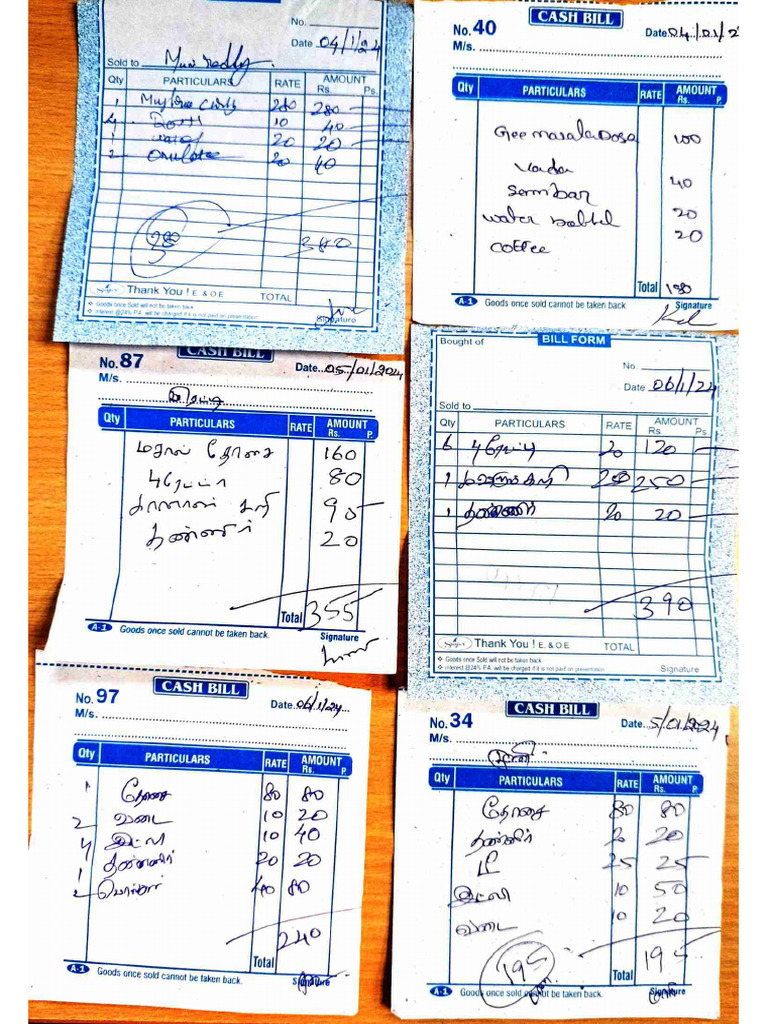 No.
Date 04/1/24
Sold to Muni reddy
Qty PARTICULARS RATE AMOUNT
Rs. Ps.
1 280 280
4 10 40
1 20 20
2 20 40
380
380
Thank You ! E & O E TOTAL
Goods once Sold will not be taken back
interest @24% P.A. will be charged if it is not paid on presentation
Signature
CASH BILL
No. 40 Date 04/01/2
M/s.
Qty PARTICULARS RATE AMOUNT
Rs. P.
Gee masala Dosa 100
Vada 40
Sembar
water bottel 20
coffee 20
Total 180
A-1 Goods once sold cannot be taken back. Signature
CASH BILL
No. 87 Date 05/01/2024
M/s.
Qty PARTICULARS RATE AMOUNT
Rs. P.
மசால் தோசை 160
புரோட்டா 80
காளான் கறி 90
தண்ணிர் 20
Total 355
A-1 Goods once sold cannot be taken back. Signature
Bought of BILL FORM
No.
Date 06/1/24
Sold to
Qty PARTICULARS RATE AMOUNT
Rs Ps.
6 20 120
1 250 250
1 தண்ணிர் 20 20
390
Thank You ! E & O.E TOTAL
Goods once Sold will not be taken back
interest @24% P.A. will be charged if it is not paid on presentation
Signature
CASH BILL
No. 97 Date 06/1/24
M/s.
Qty PARTICULARS RATE AMOUNT
Rs. P.
1 தோசை 80 80
2 வடை 10 20
4 இட்லி 10 40
1 தண்ணிர் 20 20
2 பொங்கல் 40 80
240
Total
A-1 Goods once sold cannot be taken back. Signature
CASH BILL
No. 34 Date 5/01/2024
M/s.
Qty PARTICULARS RATE AMOUNT
Rs. P.
தோசை 80 80
தண்ணிர் 20 20
டீ 25 25
இட்லி 10 50
வடை 10 20
195 Total 195
A-1 Goods once sold cannot be taken back. Signature